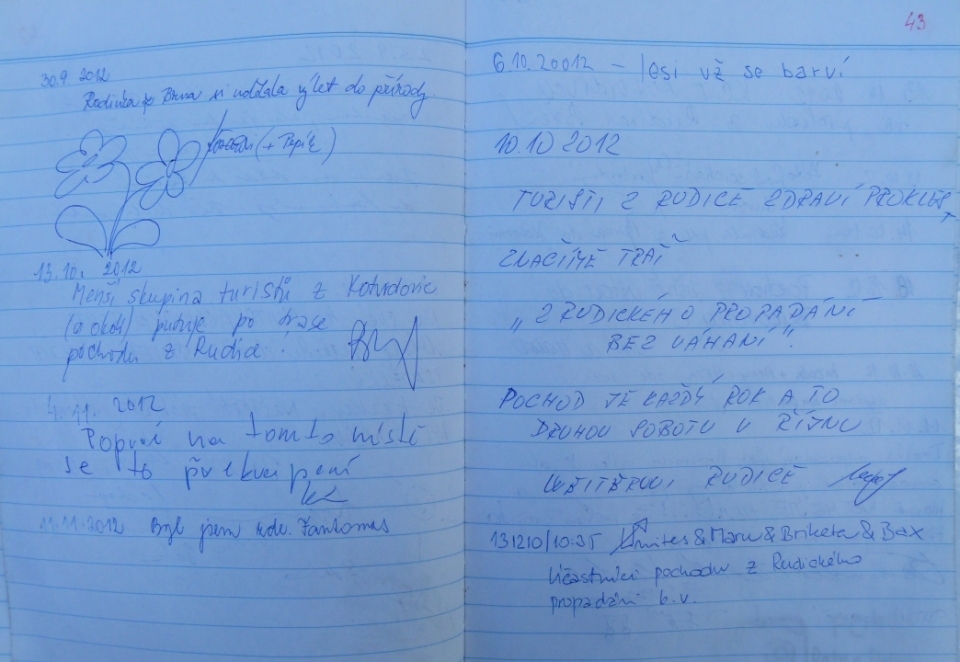 30.9. 2012
Radinka z Brna si udělala výlet do přírody.
(+ Pepík)
13.10. 2012
Menší skupina turistů z Kotvrdovic
(a okolí) putuje po trase
pochodu z Rudice.
4.11. 2012
Poprvé na tomto místě
se to překvapení
11.11.2012 Byl jsem zde. Fantomas
43
6.10.20012 – lesi už se barví
10.10 2012
TURISTI Z RUDICE ZDRAVÍ PROKLEST
ZNAČÍME TRAŤ
„Z RUDICKÉHO PROPADÁNÍ
BEZ VÁHÁNÍ".
POCHOD JE KAŽDÝ ROK A TO
DRUHOU SOBOTU V ŘÍJNU
RUDICE
131210/10:35 & Maru & Briketa & Bax
Účastníci pochodu z Rudického
propadání b.v.